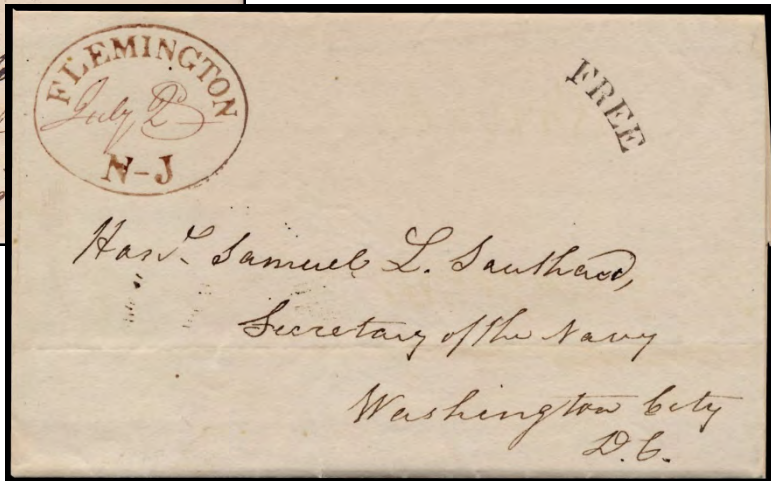 FLEMINGTON
July 2
N-J
FREE
Honl. Samuel L. Southard,
Secretary of the Navy
Washington City
D.C.